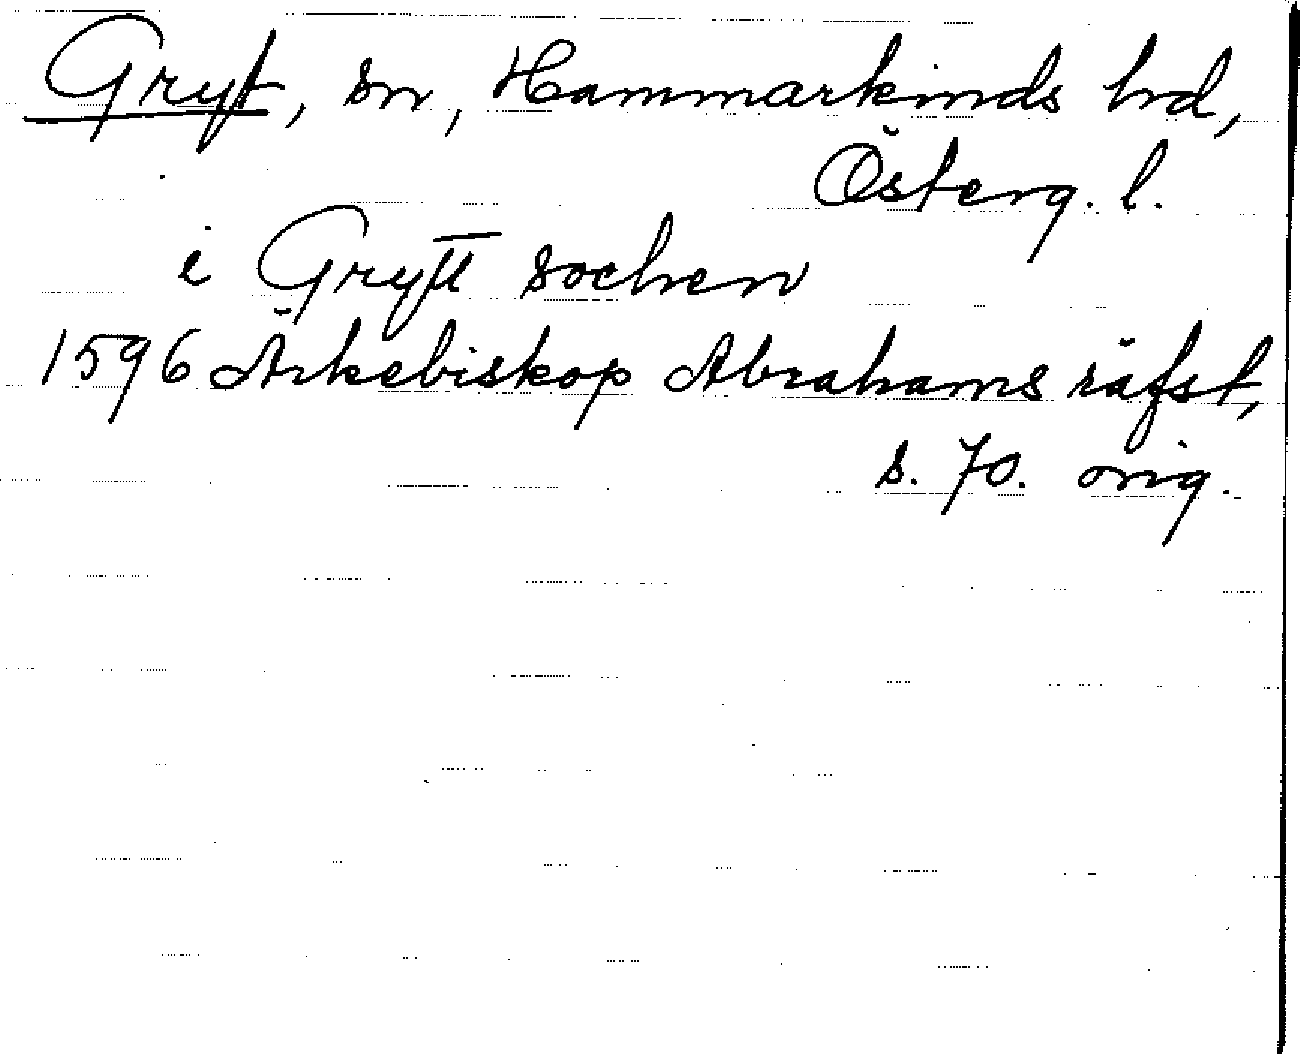 Gryt, sn, Hammarkinds hrd,
Österg. l.
i Grytt sochen
1596 Ärkebiskop Abrahams räfst,
s. 70. orig.